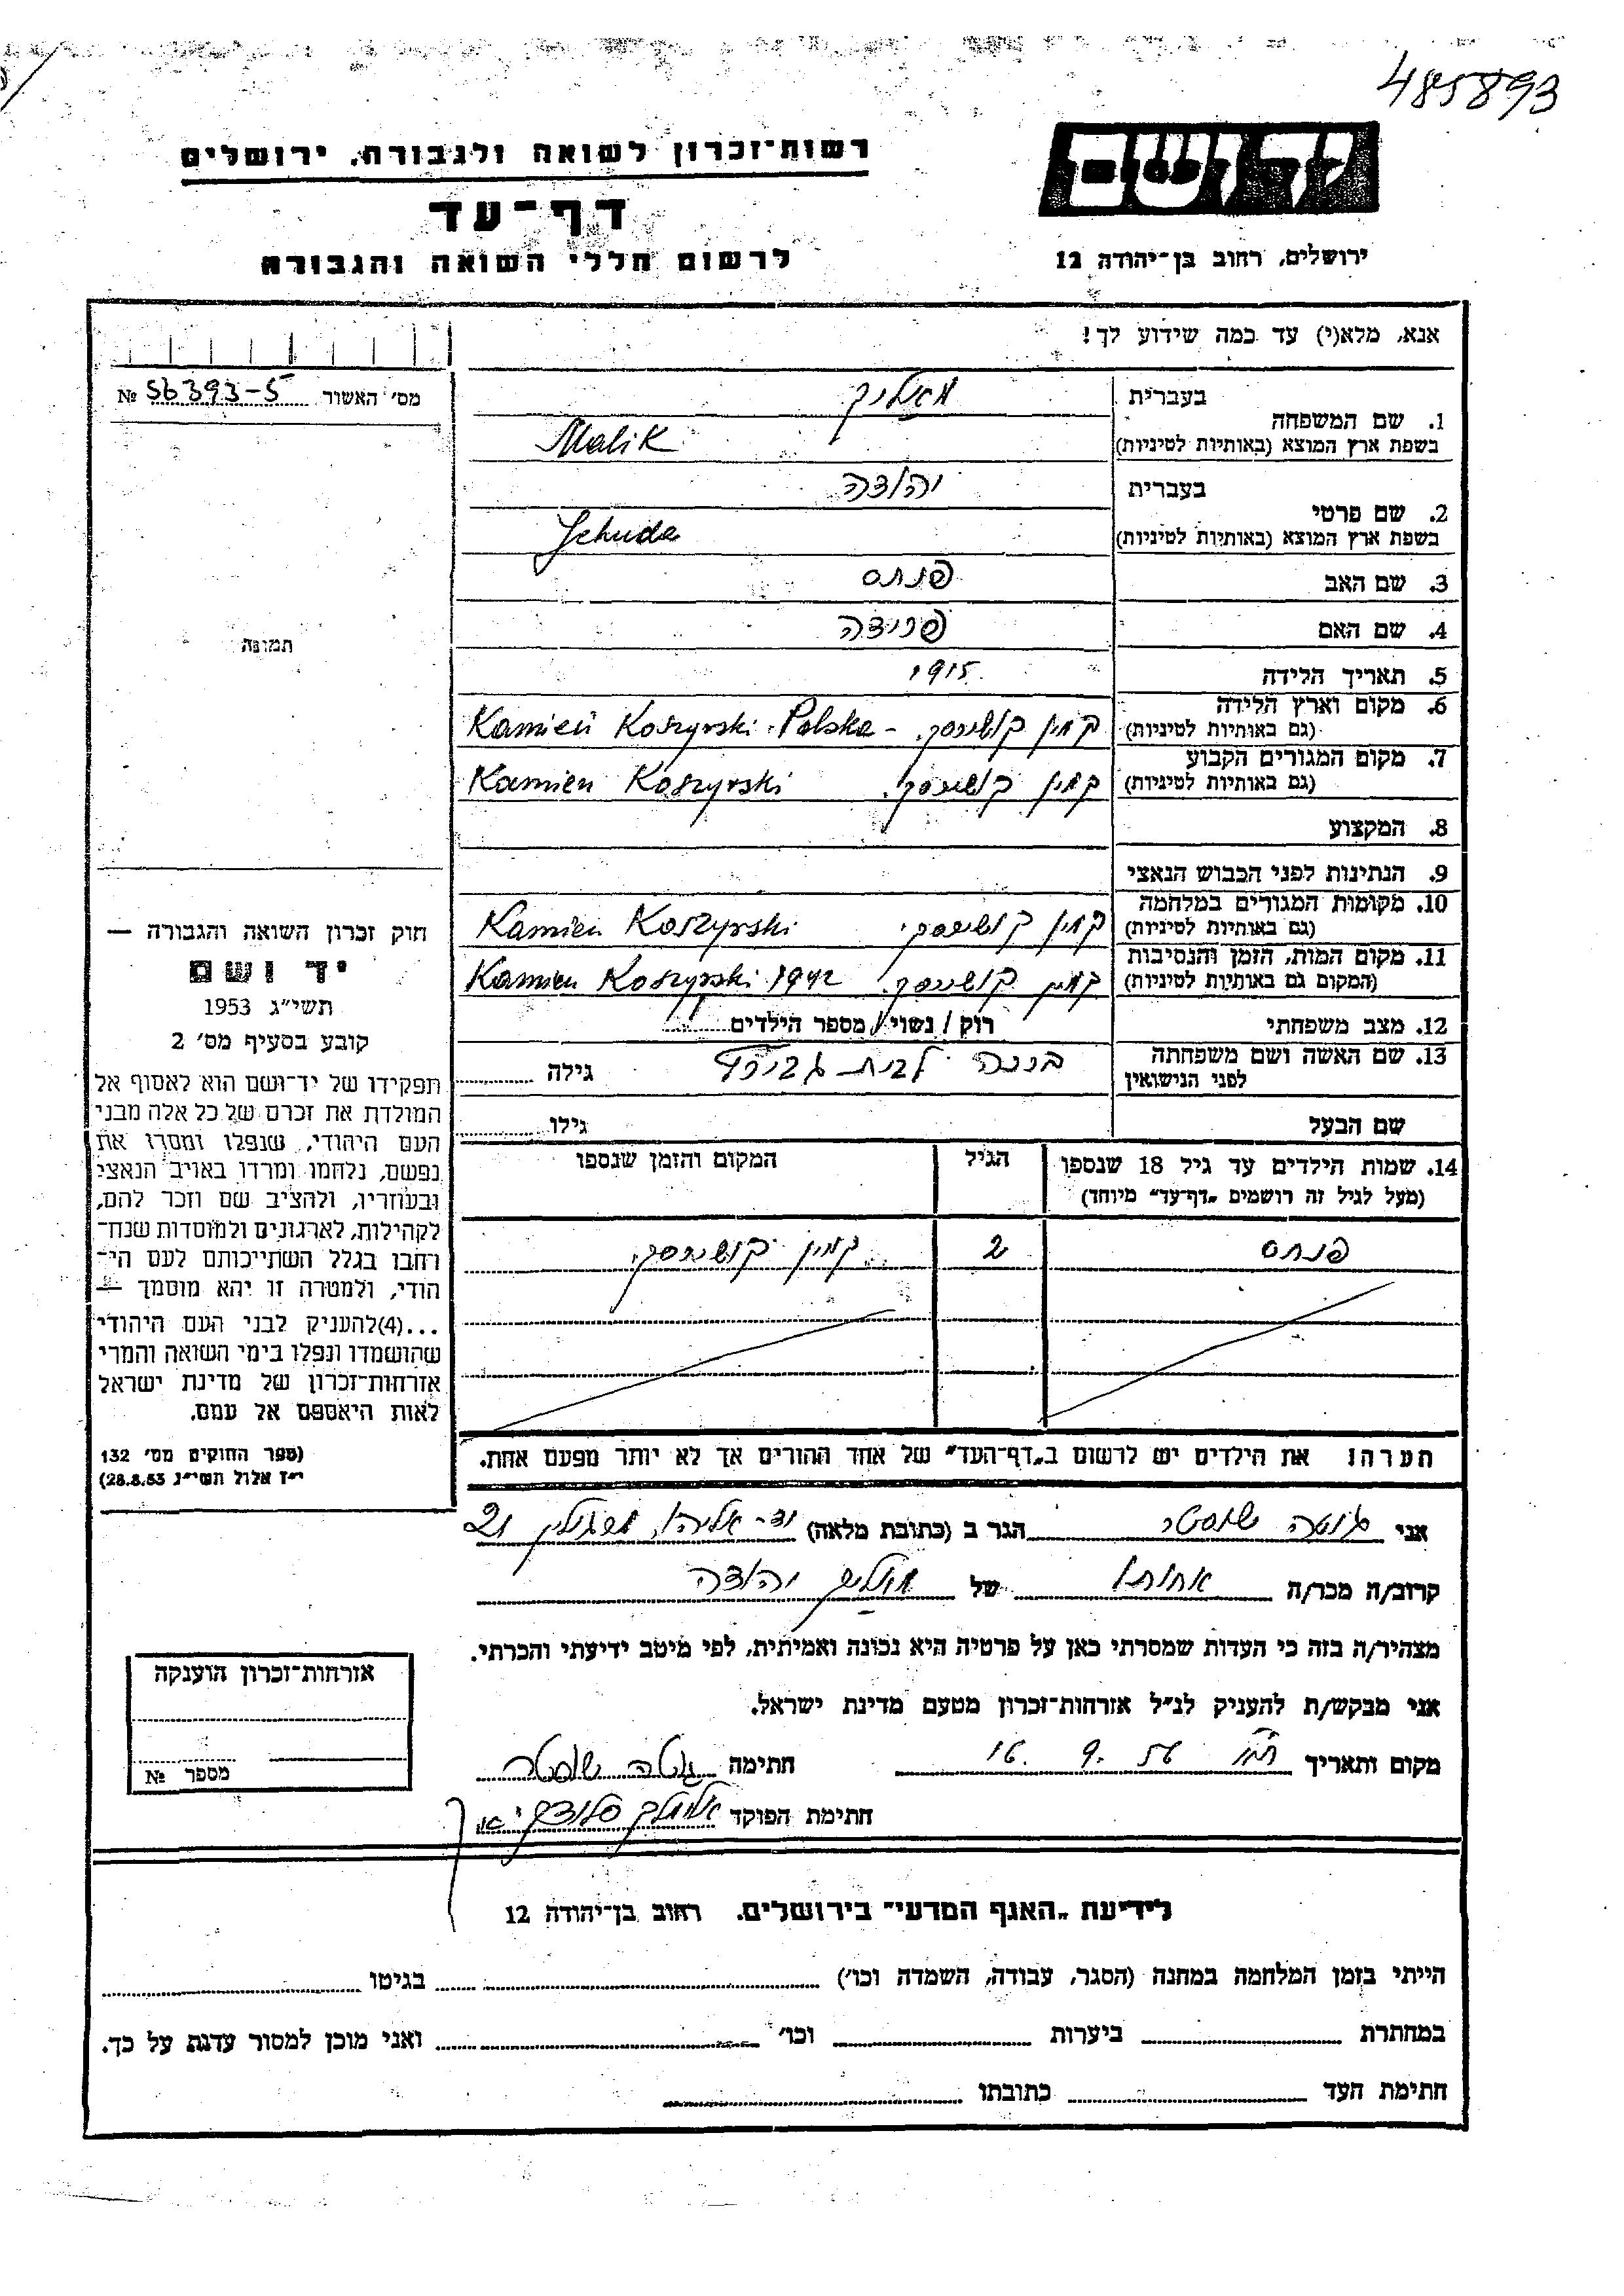 485893
רשות־זכרון לשואה ולגבורה, ירושלים
יד ושם
דף־עד
לרשום חללי השואה והגבורה
ירושלים, רחוב בן־יהודה 12
אנא, מלא(י) עד כמה שידוע לך!
מס׳ האשור 56393-5 №
תמונה
1. שם המשפחה
בעברית מאליק
בשפת ארץ המוצא (באותיות לטיניות) Malik
2. שם פרטי
בעברית יהודה
בשפת ארץ המוצא (באותיות לטיניות) Jehuda
3. שם האב פנחס
4. שם האם פרידה
5. תאריך הלידה 1915
6. מקום וארץ הלידה
(גם באותיות לטיניות) קמין קושירסקי - Kamień Koszyrski - Polska
7. מקום המגורים הקבוע
(גם באותיות לטיניות) קמין קושירסקי Kamien Koszyrski
8. המקצוע
9. הנתינות לפני הכבוש הנאצי
10. מקומות המגורים במלחמה
(גם באותיות לטיניות) קמין קושירסקי Kamien Koszyrski
11. מקום המות, הזמן והנסיבות
(המקום גם באותיות לטיניות) קמין קושירסקי Kamien Koszyrski 1942
12. מצב משפחתי רוק / נשוי / מספר הילדים
13. שם האשה ושם משפחתה
לפני הנישואין לבית גילה
שם הבעל גילו
14. שמות הילדים עד גיל 18 שנספו הגיל המקום והזמן שנספו
(מעל לגיל זה רושמים „דף־עד״ מיוחד)
פנחס 2 קמין קושירסקי
חוק זכרון השואה והגבורה —
יד ושם
תשי״ג 1953
קובע בסעיף מס׳ 2
תפקידו של יד־ושם הוא לאסוף אל
המולדת את זכרם של כל אלה מבני
העם היהודי, שנפלו ומסרו את
נפשם, נלחמו ומרדו באויב הנאצי
ובעוזריו, ולהציב שם וזכר להם,
לקהילות, לארגונים ולמוסדות שנח־
רחבו בגלל השתייכותם לעם הי־
הודי, ולמטרה זו יהא מוסמך —
...(4)להעניק לבני העם היהודי
שהושמדו ונפלו בימי השואה והמרי
אזרחות־זכרון של מדינת ישראל
לאות היאספם אל עמם.
(ספר החוקים מס׳ 132
י״ז אלול תשי״ג 28.8.53)
הערה! את הילדים יש לרשום ב„דף־העד״ של אחד ההורים אך לא יותר מפעם אחת.
אני גוטה שוסטר הגר ב (כתובת מלאה) יד - אליהו,
קרוב/ה מכר/ה אחותו של מאליק יהודה
מצהיר/ה בזה כי העדות שמסרתי כאן על פרטיה היא נכונה ואמיתית, לפי מיטב ידיעתי והכרתי.
אני מבקש/ת להעניק לנ״ל אזרחות־זכרון מטעם מדינת ישראל.
מקום ותאריך ת״א 16. 9. 56 חתימה גוטה שוסטר
חתימת הפוקד
אזרחות־זכרון הוענקה
מספר №
לידיעת „האגף המדעי״ בירושלים, רחוב בן־יהודה 12
הייתי בזמן המלחמה במחנה (הסגר, עבודה, השמדה וכו׳) בגיטו
במחתרת ביערות וכו׳ ואני מוכן למסור עדות על כך.
חתימת העד כתובתו